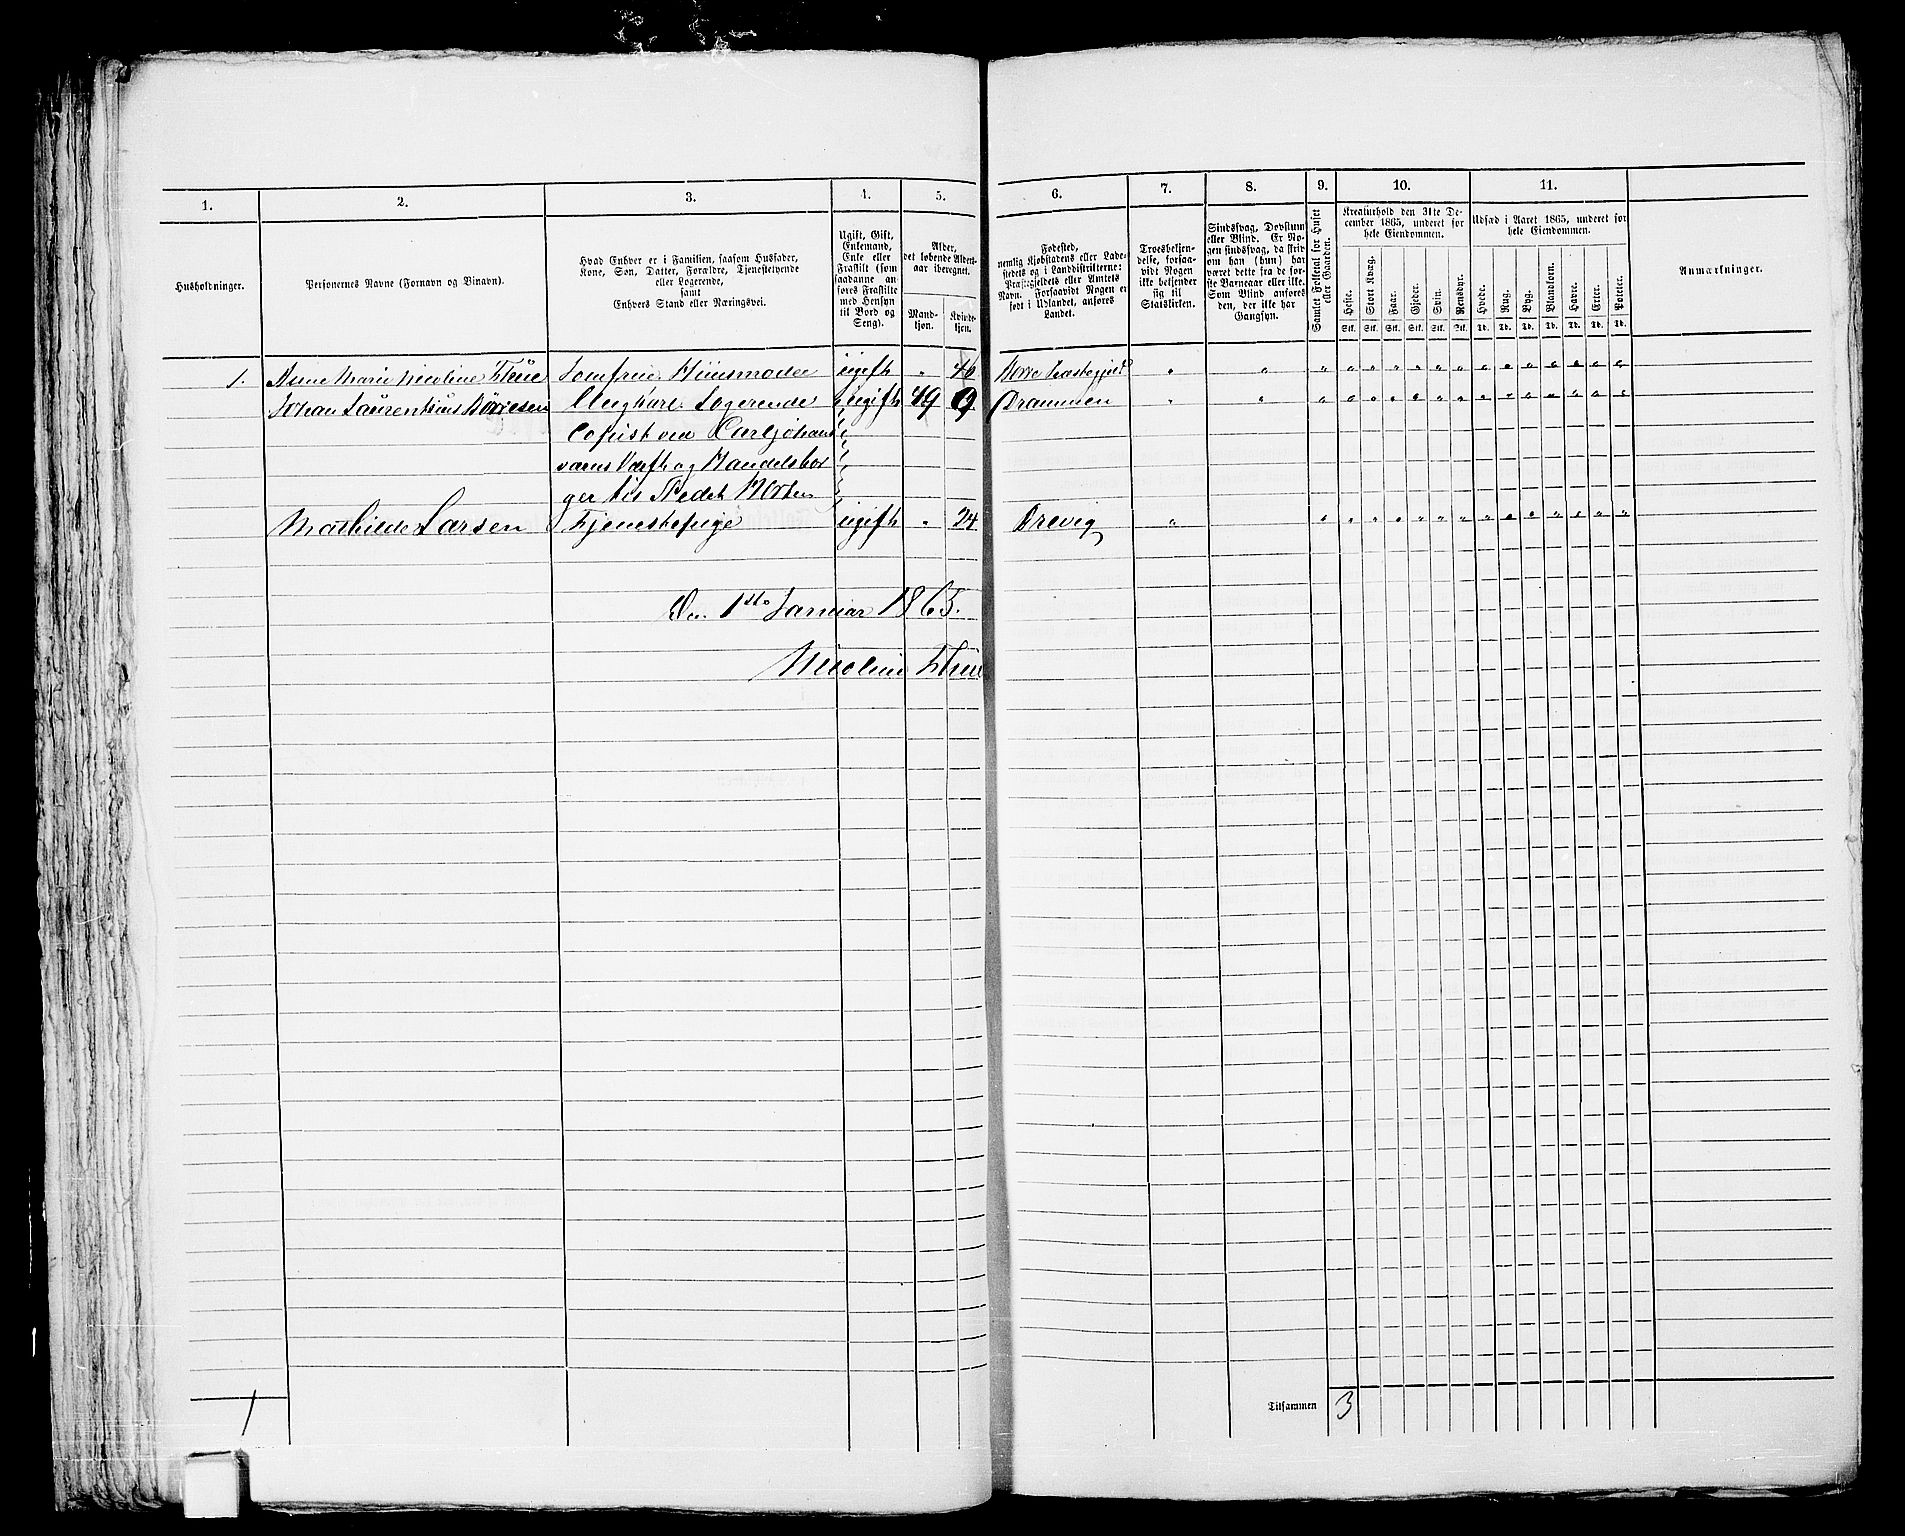 1. 2. 3. 4. 5. 6. 7. 8. 9. 10. 11.
Husholdninger.
Personernes Navne (Fornavn og Binavn).
Hvad Enhver er i Familien, saasom Husfader,
Kone, Søn, Datter, Forældre, Tjenestetyende
eller Logerende,
samt
Enhvers Stand eller Næringsvei.
Ugift, Gift,
Enkemand,
Enke eller
Fraskilt (som
saadanne an-
føres Fraskilte
med Hensyn
til Bord og
Seng).
Alder,
det løbende Alders-
aar iberegnet.
Mand-
kjøn.
Kvinde-
kjøn.
Fødested,
nemlig Kjøbstadens eller Lade-
stedets og i Landdistrikterne:
Præstegjeldets eller Amtets
Navn. Forsaavidt Nogen er
født i Udlandet, anføres
Landet.
Troesbekjen-
delse, forsaa-
vidt Nogen
ikke bekjender
sig til
Statskirken.
Sindssvag, Døvstum
eller Blind. Er No-
gen sindssvag, da skriv
om han (hun) har
været dette fra de før-
ste Barneaar eller ikke.
Som Blind anføres
den, der ikke har
Gangsyn.
Samlet Folketal for Huset
eller Gaarden.
Kreaturhold den 31te De-
cember 1865, underet for
hele Eiendommen.
Heste. Stort Kvæg. Faar. Gjeder. Svin. Rensdyr.
Stk. Stk. Stk. Stk. Stk. Stk.
Udsæd i Aaret 1865, underet for
hele Eiendommen.
Hvede. Rug. Byg. Blandkorn. Havre. Erter. Poteter.
Td. Td. Td. Td. Td. Td. Td.
Anmærkninger.
1. Anne Marie Nicoline Thue Jomfrue Huusmoder ugift " 46 Borre Præstegjeld " " " " " " " " " " " " " " " "
Johan Laurentius Børresen Ungkarl Logerende ugift 49 Drammen " " " " " " " " " " " " " " " "
Copist ved Carljohans
værns Værft og Handelsbor
ger til Stedet Horten
Mathilde Larsen Tjenestepige ugift " 24 Drevig " " " " " " " " " " " " " " "
Den 1ste Januar 1865.
Nicoline Thue
1
Tilsammen 3